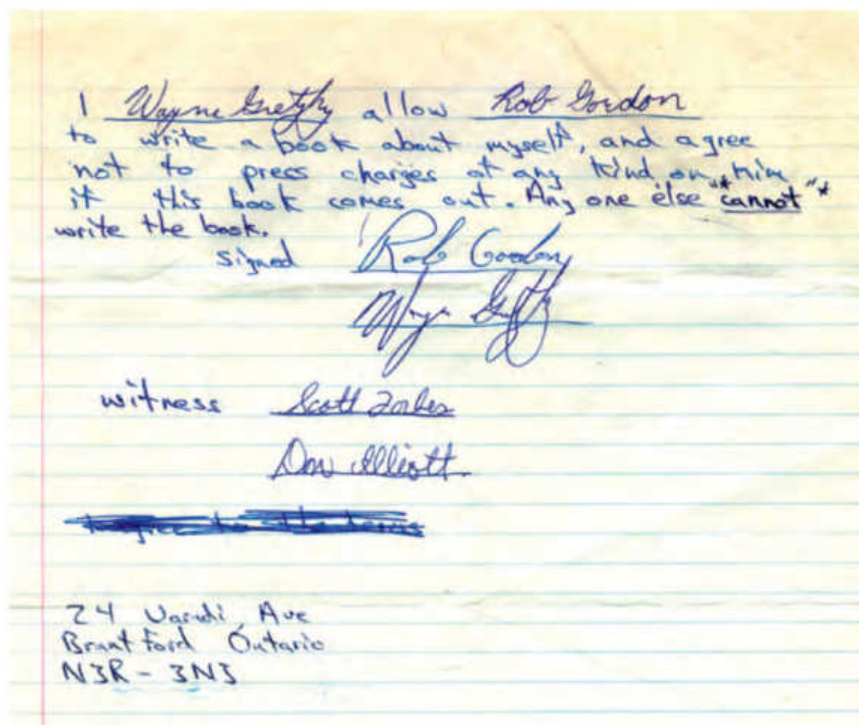 I Wayne Gretzky allow Rob Gordon
to write a book about myself, and agree
not to press charges of any kind on him
if this book comes out. Any one else "*cannot"*
write the book.
signed Rob Gordon
Wayne Gretzky
witness Scott Forbes
Don Elliott.
I agree to the terms
24 Varadi Ave
Brantford Ontario
N3R - 3N3